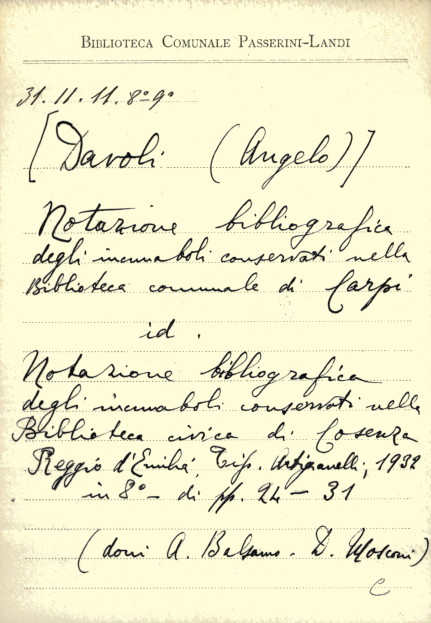 BIBLIOTECA COMUNALE PASSERINI-LANDI
31.II.11.8º-9º
[Davoli (Angelo)]
Notazione bibliografica
degli incunaboli conservati nella
Biblioteca comunale di Carpi
id.
Notazione bibliografica
degli incunaboli conservati nella
Biblioteca civica di Cosenza
Reggio d'Emilia, Tip. Artigianelli, 1932
in 8º - di pp. 24 - 31
(doni A. Balsamo - D. Mosconi)
C